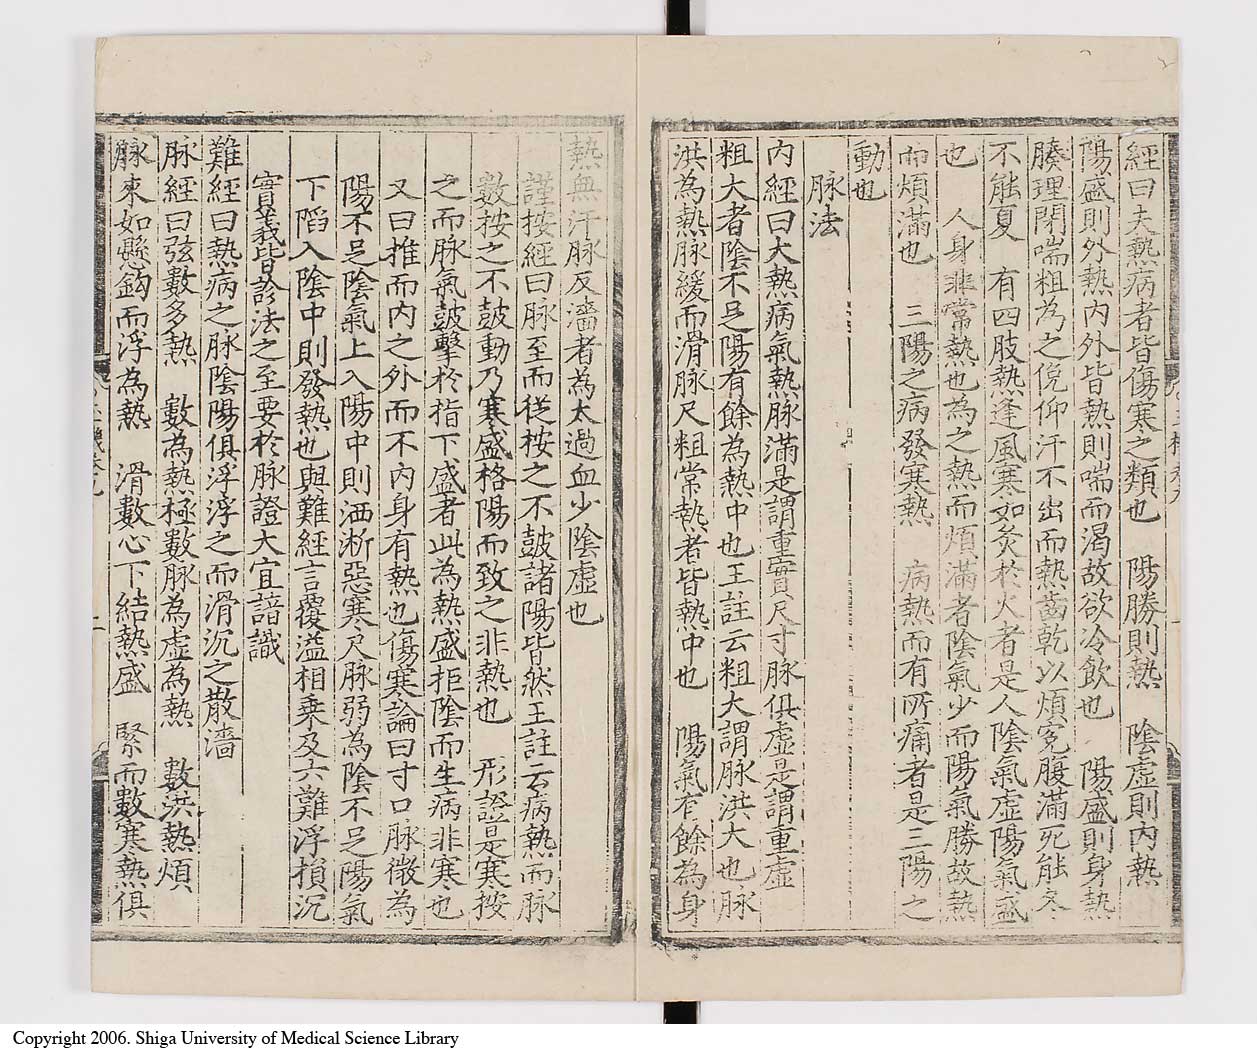 經曰夫熱病者皆傷寒之類也　陽勝則熱　陰虛則內熱
陽盛則外熱內外皆熱則喘而渴故欲冷飲也　陽盛則身熱
腠理閉喘粗為之俛仰汗不出而熱齒乾以煩冤腹滿死能冬
不能夏　有四肢熱逢風寒如炙於火者是人陰氣虛陽氣盛
也　人身非常熱也為之熱而煩滿者陰氣少而陽氣勝故熱
而煩滿也　三陽之病發寒熱　病熱而有所痛者是三陽之
動也
脉法
內經曰大熱病氣熱脉滿是謂重實尺寸脉俱虛是謂重虛
粗大者陰不足陽有餘為熱中也王註云粗大謂脉洪大也脉
洪為熱脉緩而滑脉尺粗常熱者皆熱中也　陽氣有餘為身
熱無汗脉反濇者為太過血少陰虛也
謹按經曰脉至而從按之不鼓諸陽皆然王註云病熱而脉
數按之不鼓動乃寒盛格陽而致之非熱也　形證是寒按
之而脉氣鼓擊於指下盛者此為熱盛拒陰而生病非寒也
又曰推而內之外而不內身有熱也傷寒論曰寸口脉微為
陽不足陰氣上入陽中則洒淅惡寒尺脉弱為陰不足陽氣
下陷入陰中則發熱也與難經言覆溢相乘及六難浮損沉
實義皆診法之至要於脉證大宜諳識
難經曰熱病之脉陰陽俱浮浮之而滑沉之散濇
脉經曰弦數多熱　數為熱極數脉為虛為熱　數洪熱煩
脉來如懸鈎而浮為熱　滑數心下結熱盛　緊而數寒熱俱